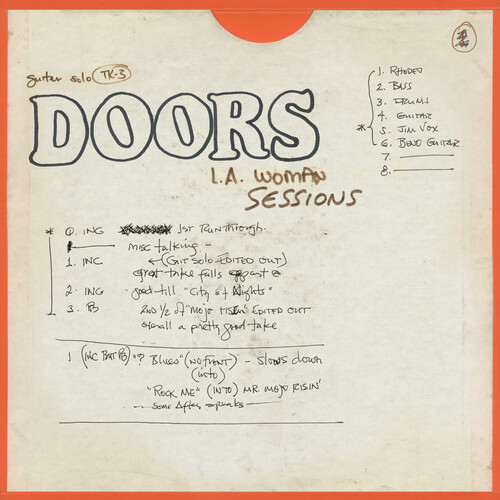 guitar solo TK-3
DOORS
L.A. WOMAN
SESSIONS
1. RHODES
2. BASS
3. DRUMS
4. GUITAR
* 5. JIM VOX
6. BEND GUITAR
7.
8.
* 0. INC 1ST RUNTHROUGH.
misc talking -
1. INC ← (GIT SOLO EDITED OUT)
great take falls apart @
2. INC good till "City of Nights"
3. PB 2ND 1/2 of "MOJO RISIN" EDITED OUT
overall a pretty good take
1 (INC BUT PB) "? Blues" (NO FRONT) - Slows down
(into)
"ROCK ME" (INTO) MR MOJO RISIN'
Some After